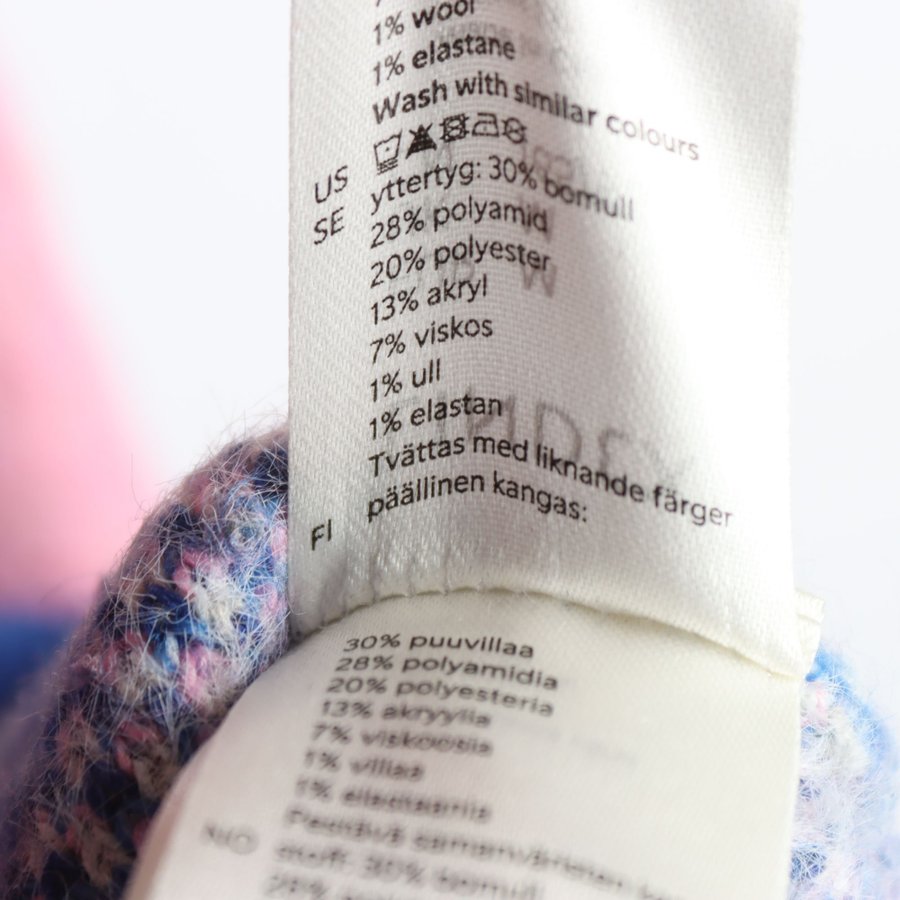 1% wool
1% elastane
Wash with similar colours
US
SE yttertyg: 30% bomull
28% polyamid
20% polyester
13% akryl
7% viskos
1% ull
1% elastan
Tvättas med liknande färger
FI päällinen kangas:
30% puuvillaa
28% polyamidia
20% polyesteria
13% akryylia
7% viskoosia
1% villaa
1% elastaania
NO stoff: 30% bomull
28%